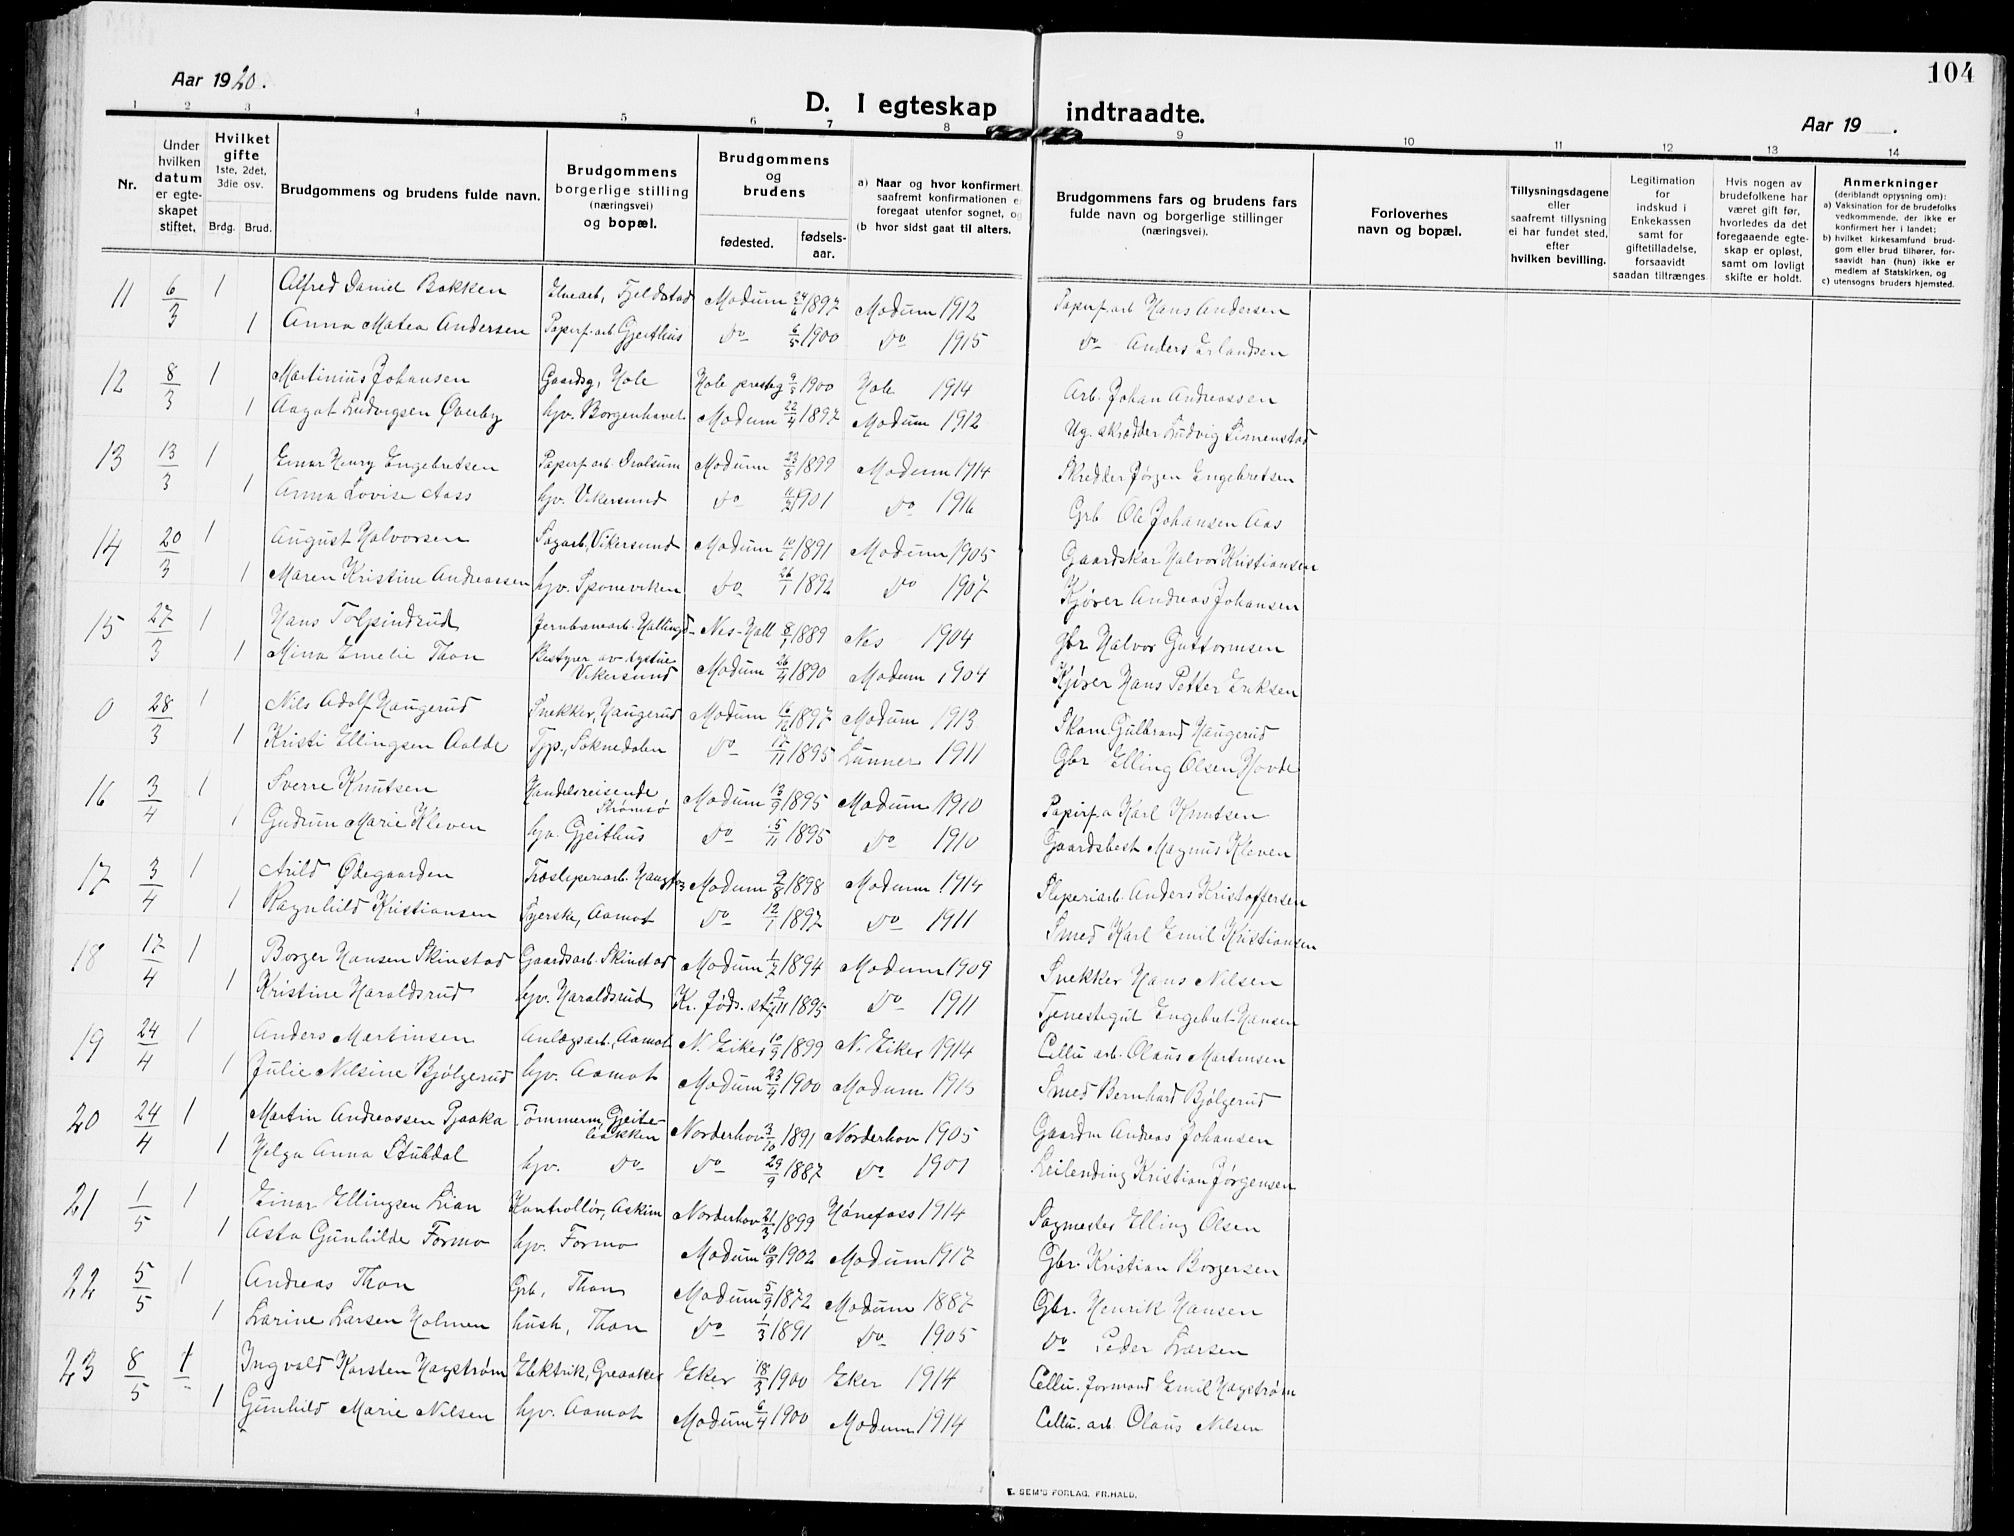 104
Aar 1920.
D. I egteskap indtraadte.
Aar 19 .
1 2 3 4 5 6 7 8 9 10 11 12 13 14
Nr.
Under hvilken datum er egteskapet stiftet.
Hvilket gifte 1ste, 2det, 3die osv.
Brdg. Brud.
Brudgommens og brudens fulde navn.
Brudgommens borgerlige stilling (næringsvei) og bopæl.
Brudgommens og brudens
fødested. fødselsaar.
a) Naar og hvor konfirmert, saafremt konfirmationen er foregaat utenfor sognet, og
(b hvor sidst gaat til alters.
Brudgommens fars og brudens fars fulde navn og borgerlige stillinger (næringsvei).
Forlovernes navn og bopæl.
Tillysningsdagene eller saafremt tillysning ei har fundet sted, efter hvilken bevilling.
Legitimation for indskud i Enkekassen samt for giftetilladelse, forsaavidt saadan tiltrænges
Hvis nogen av brudefolkene har været gift før, hvorledes da det foregaaende egteskap er opløst, samt om lovligt skifte er holdt.
Anmerkninger
(deriblandt opjysning om):
a) Vaksination for de brudefolks vedkommende, der ikke er konfirmert her i landet;
b) hvilket kirkesamfund brudgom eller brud tilhører, forsaavidt han (hun) ikke er medlem af Statskirken, og
c) utensogns bruders hjemsted.
11 6/3 1 Alfred Daniel Bakken Fjeldstad Modum 24/6 1897 Modum 1912 Papirf. arb Hans Andersen
1 Anna Matea Andersen Papirf. arb Gjeithus Do 6/5 1900 Do 1915 Do Anders Erlandsen
12 8/3 1 Martinius Johansen Gaardsg, Hole Hole presteg 9/5 1900 Hole 1914 Arb. Johan Andreassen
1 Aagot Ludvigsen Øverby hjv. Borgenhavet Modum 22/4 1897 Modum 1912 Ug. skrædder Ludvig Simenstad
13 13/3 1 Einar Henry Engebretsen Papirf. arb. Dralsum Modum 23/3 1899 Modum 1914 Skredder Jørgen Engebretsen
1 Anna Lovise Aass hjv. Vikersund Do 1901 Do 1916 Grb Ole Johansen Aas
14 20/3 1 August Halvorsen Sagarb, Vikersund Modum 10/6 1891 Modum 1905 Gaardskar Halvor Kristiansen
1 Maren Kristine Andreassen hjv. Sponeviken Do 26/1 1892 Do 1907 Kjører Andreas Johansen
15 27/3 1 Hans Tolpindrud Jernbanearb. Hallingd- Nes-Hall 8/1 1889 Nes 1904 gbr Halvor Guttormsen
1 Mina Emelie Thon Bestyrer av Vikersund Modum 26/4 1890 Modum 1904 Kjører Hans Petter Eriksen
0 28/3 1 Nils Adolf Haugerud Snekker, Haugerud Modum 16/12 1897 Modum 1913 Skom. Gulbrand Haugerud
1 Kristi Ellingsen Aalde Tjp., Soknedalen Do 17/11 1895 Lunner 1911 Gbr Elling Olsen Hovde
16 3/4 1 Sverre Knutsen Handelsreisende Strømsø Modum 13/9 1895 Modum 1910 Papirf.a Karl Knutsen
1 Gudrun Marie Kleven hjv. Gjeithus Do 15/11 1895 Do 1910 Gaardsbest Magnus Kleven
17 3/4 1 Arild Ødegaarden Træsliperiarb. Haugfos Modum 9/8 1898 Modum 1914 Sliperiarb. Anders Kristoffersen
1 Ragnhild Kristiansen Syerske, Aamot Do 12/1 1897 Do 1911 Smed Karl Emil Kristiansen
18 17/4 1 Borger Hansen Skinstad Gaardsarb. Skinstad Modum 1/7 1894 Modum 1909 Snekker Hans Nilsen
1 Kristine Haraldsrud hjv. Haraldsrud Kr. føds. st 9/11 1895 Do 1911 Tjenestegut Engebret Hansen
19 24/4 1 Anders Martinsen Anlægsarb., Aamot N. Eiker 10/9 1899 N. Eiker 1914 Cellu arb. Olaus Martinsen
1 Julie Nilsine Bjølgerud hjv. Aamot Modum 23/4 1900 Modum 1915 Smed Bernhard Bjølgerud
20 24/4 1 Martin Andreassen Pjaaka Tømmerm, Gjeitebakken Norderhov 3/10 1891 Norderhov 1905 Gaardm Andreas Johansen
1 Helga Anna Stubdal hjv. Do Do 29/9 1887 Do 1901 Leilending Kristian Jørgensen
21 1/5 1 Einar Ellingsen Lian Kontrollør, Askim Norderhov 21/3 1899 Hønefoss 1914 Sagmester Elling Olsen
1 Asta Gunhilde Formo hjv. Formo Modum 10/9 1902 Modum 1917 Gbr. Kristian Borgersen
22 5/5 1 Andreas Thon Grb, Thon Modum 5/9 1872 Modum 1887 Gbr. Henrik Hansen
1 Larine Larsen Holmen hush, Thon Do 1/3 1891 Do 1905 Do Peder Larsen
23 8/5 1 Ingvald Karsten Hagstrøm Elektrik, Greaaker Eker 18/3 1900 Eker 1914 Cellu. formand Emil Hagstrøm
1 Gunhild Marie Nilsen hjv. Aamot Modum 6/4 1900 Modum 1914 Cellu. arb. Olaus Nilsen
E. SEM'S FORLAG, FR.HALD.